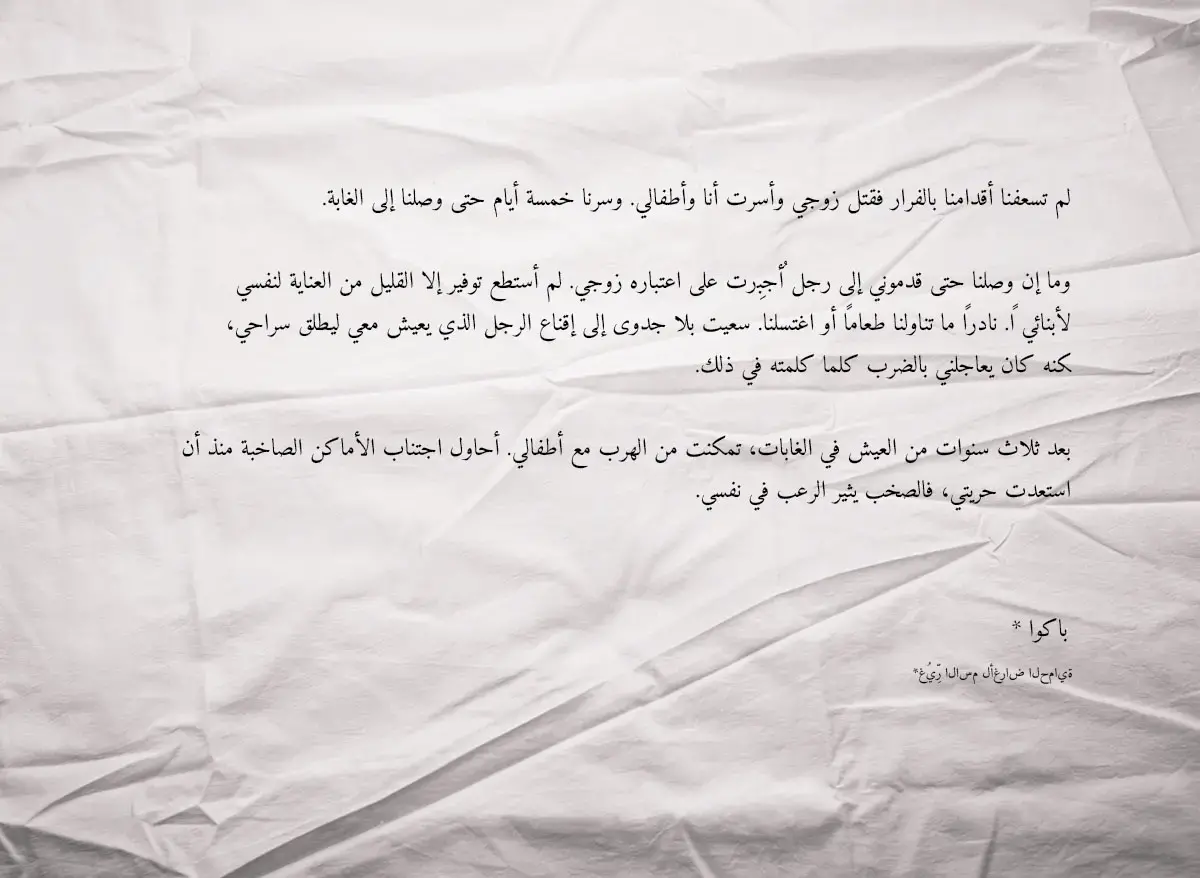 لم تسعفنا أقدامنا بالفرار فقتل زوجي وأسرت أنا وأطفالي. وسرنا خمسة أيام حتى وصلنا إلى الغابة.
وما إن وصلنا حتى قدموني إلى رجل أُجبِرت على اعتباره زوجي. لم أستطع توفير إلا القليل من العناية لنفسي
لأبنائي اً. نادراً ما تناولنا طعاماً أو اغتسلنا. سعيت بلا جدوى إلى إقناع الرجل الذي يعيش معي ليطلق سراحي،
كنه كان يعاجلني بالضرب كلما كلمته في ذلك.
بعد ثلاث سنوات من العيش في الغابات، تمكنت من الهرب مع أطفالي. أحاول اجتناب الأماكن الصاخبة منذ أن
استعدت حريتي، فالصخب يثير الرعب في نفسي.
باكوا *
*غُيِّر الاسم لأغراض الحماية